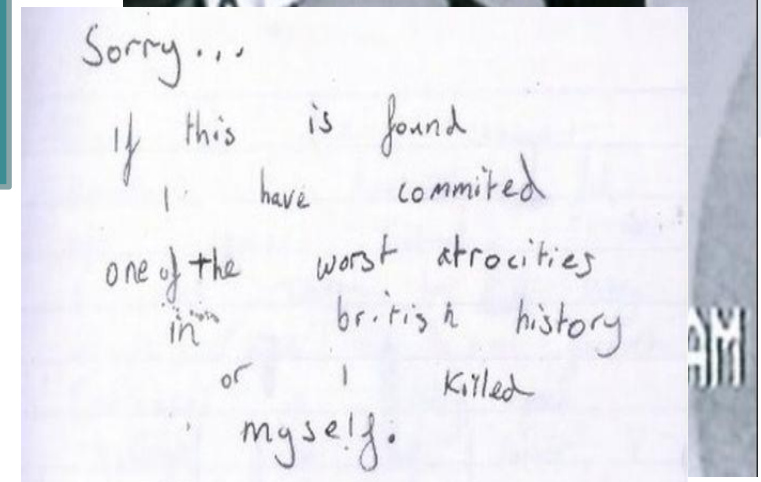 Sorry...
If this is found
I have commited
one of the worst atrocities
in british history
or I killed
myself.
AM